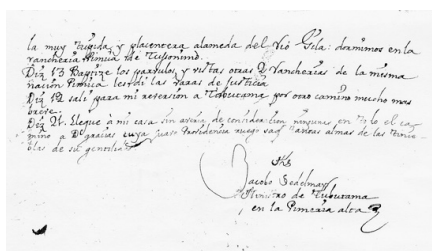 la muy tupida, y placentera alameda del Rio Gila: dormimos en la
rancheria Nimica de Tusonimo.
Dia 13 Baptize los parvulos, y vistas otras 2 Rancherias de la misma
nacion Pimica les di las varas de Justicia
Dia 12 sali para mi reversion a Tubutama por otro camino mucho mas
breve.
Dia 21. llegue à mi casa sin averia de consideracion ninguna, en todo el ca-
mino a Ds gracias cuya Providencia ruego saq almas de las tinie-
blas de su gentilid
Jhs
Jacobo Sedelmayr
Ministro de Tubutama
en la Pimeria alta